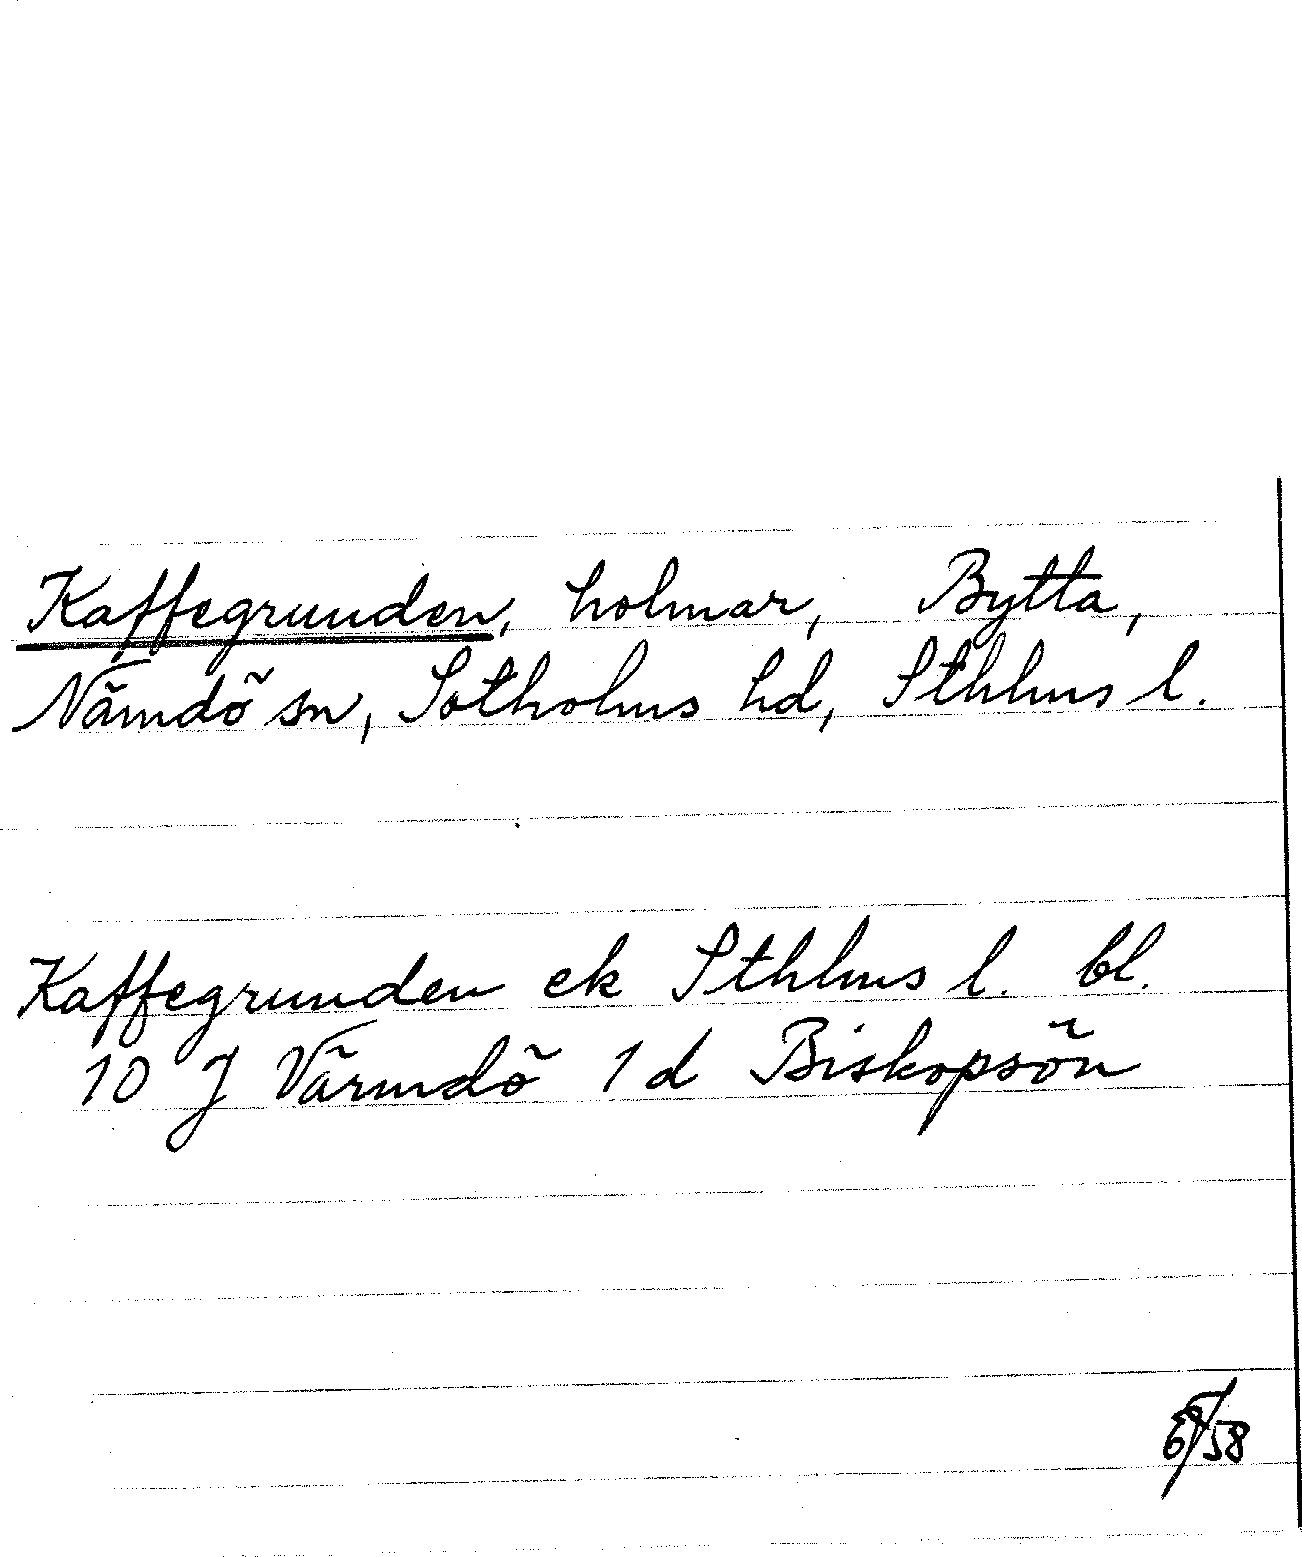 Kaffegrunden, holmar, Bytta,
Nämdö sn, Sotholms hd, Sthlms l.
Kaffegrunden ek Sthlms l. bl.
10 J Värmdö 1 d Biskopsön